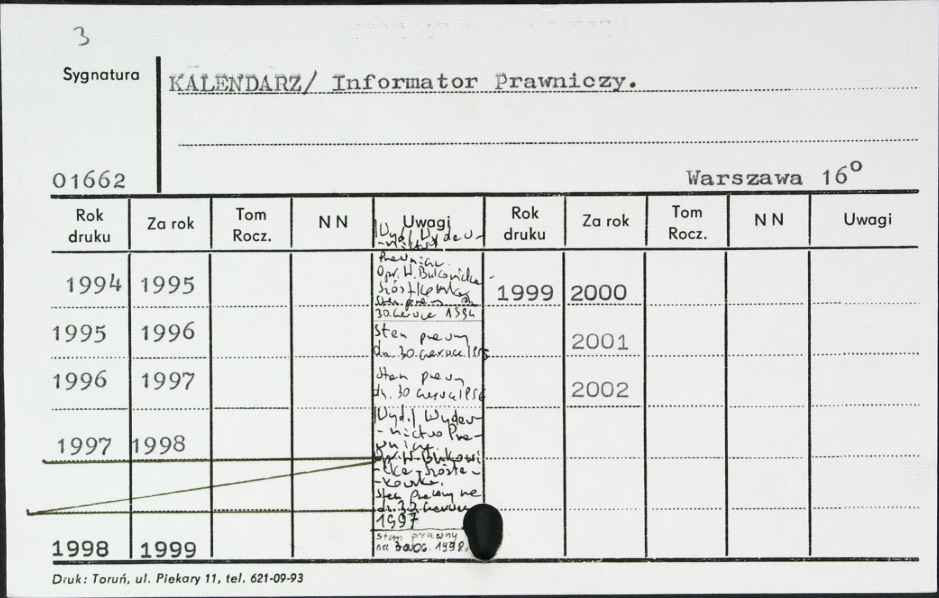 3
Sygnatura
KALENDARZ/ Informator Prawniczy.
01662
Warszawa 16°
Rok druku
Za rok
Tom Rocz.
N N
Uwagi
Rok druku
Za rok
Tom Rocz.
N N
Uwagi
|Wyd.| Wydaw-
-nictwo
Prawnicze.
Opr. W. Bukowicka
Stan prawny
30 czerwca 1994
1994 1995
1999 2000
1995 1996
Stan prawny
dn. 30 czerwca 1995
2001
1996 1997
Stan prawny
dn. 30 czerwca 1996
2002
1997 1998
|Wyd.| Wydaw-
-nictwo Pra-
wnicze.
Opr. W. Bukowi-
Stan prawny na
dn. 30 czerwca
1997
1998 1999
stan prawny
na 30.06.1998r.
Druk: Toruń, ul. Piekary 11, tel. 621-09-93